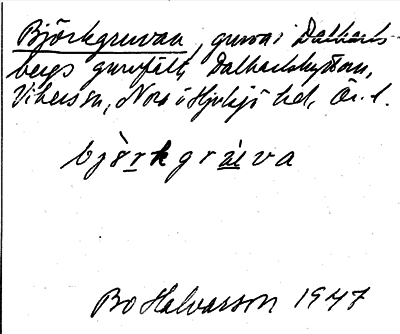 Björkgruvan, gruva i Dalkarls-
bergs gruvfält, Dalkarlshyttan,
Vikersvn, Nora o Hjulsjö hd, Ör. l.
björkgräva
Bo Halvarson 1947